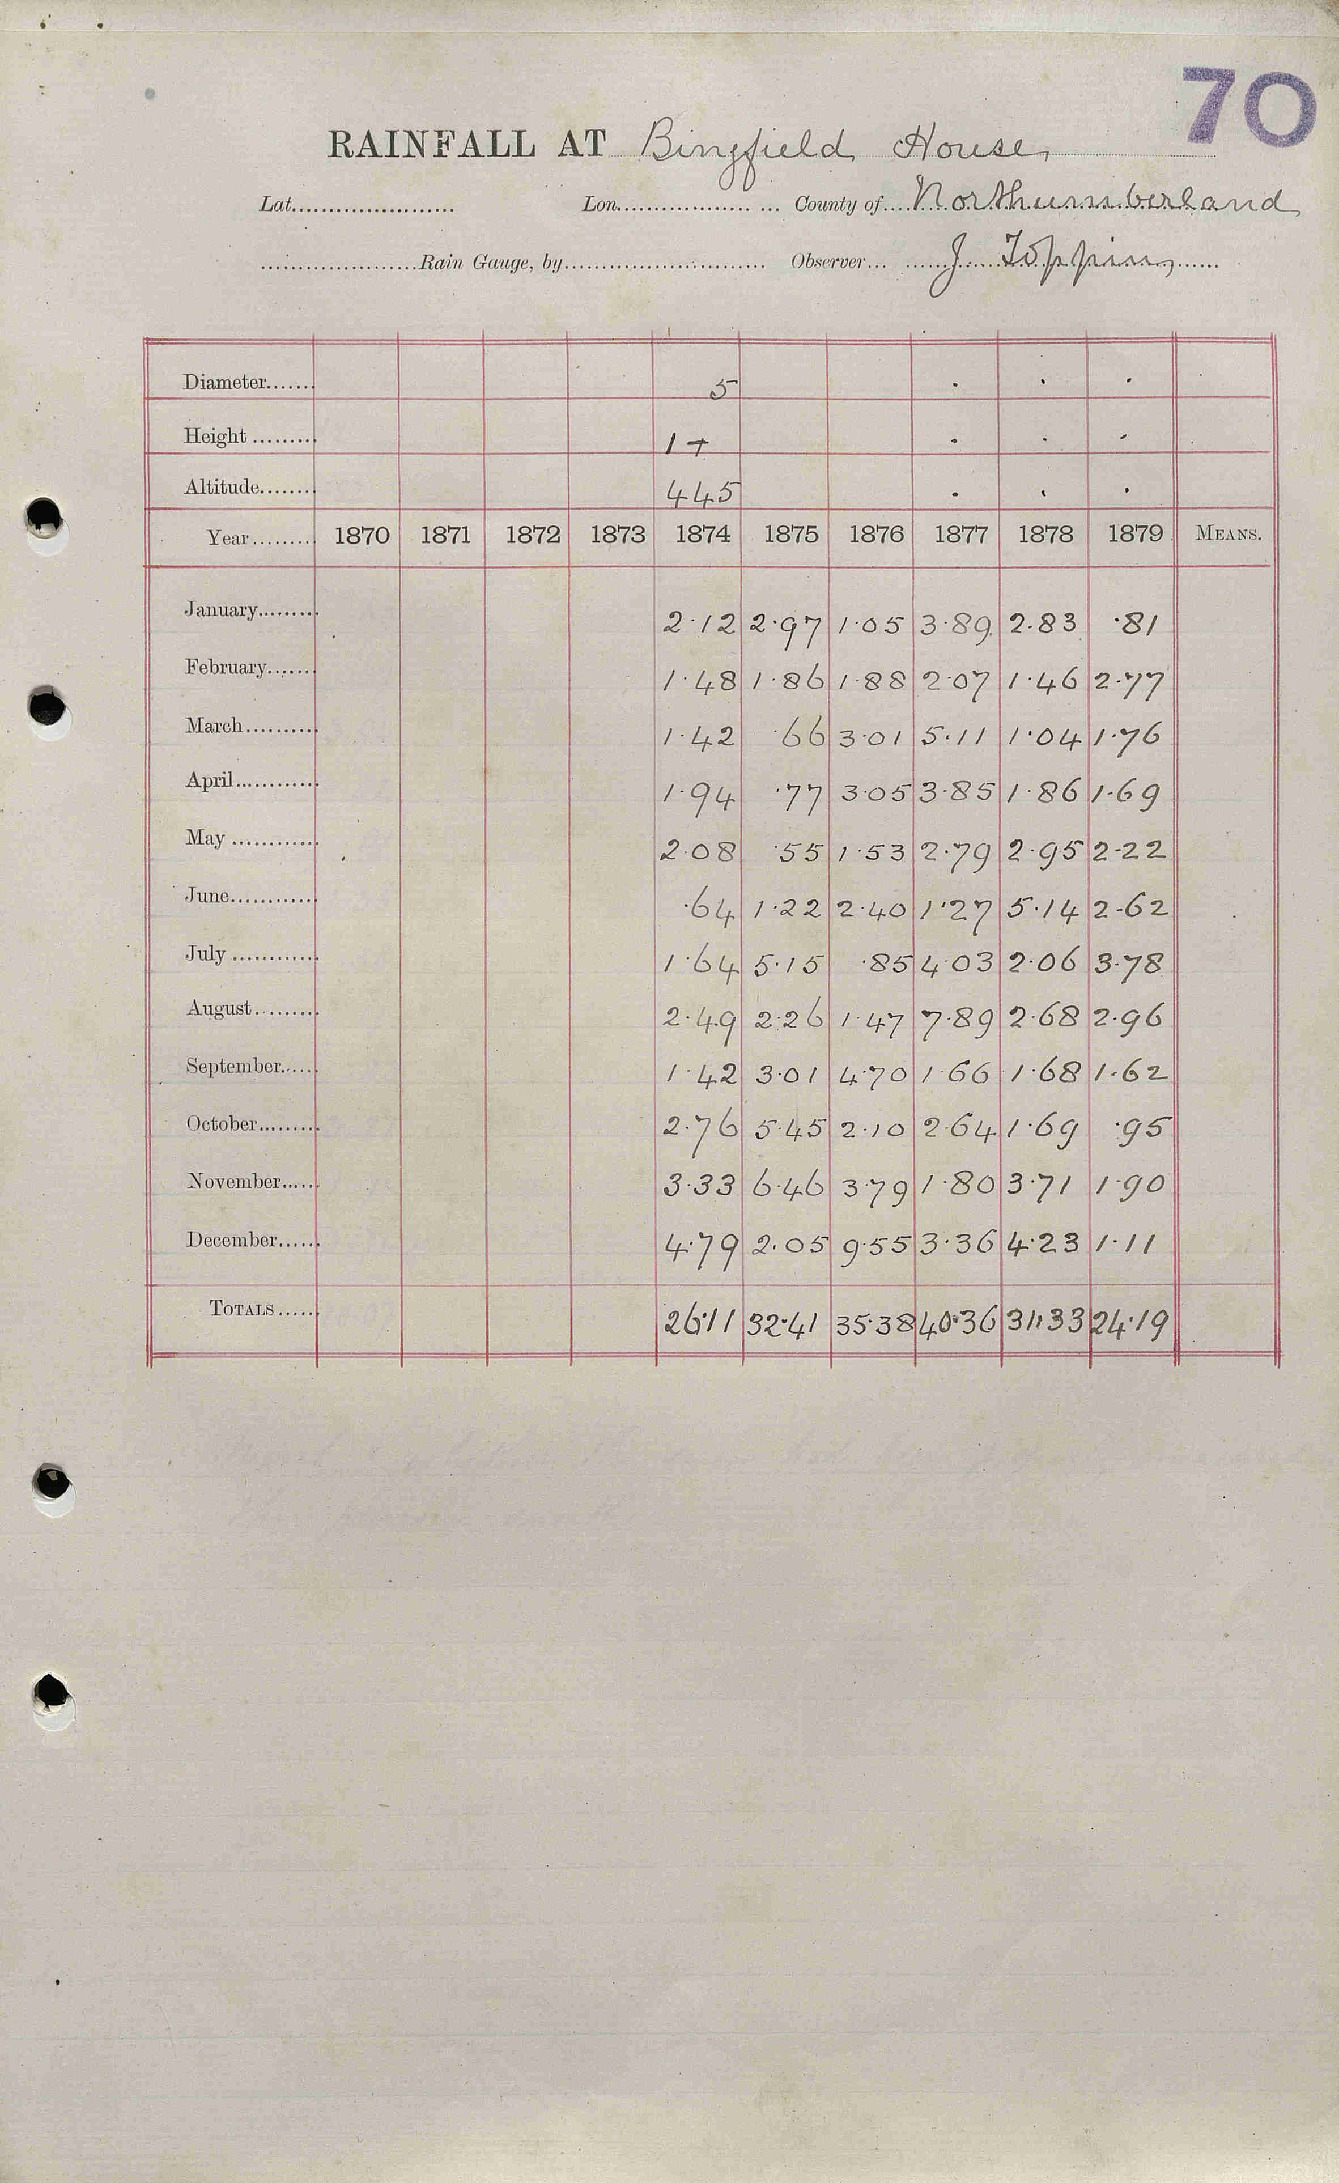 70
RAINFALL AT Bingfield House,
Lat. Lon. County of Northumberland
Rain Gauge, by Observer J Topping
Diameter 5 . . .
Height 1 + . . .
Altitude 445 . . .
Year 1870 1871 1872 1873 1874 1875 1876 1877 1878 1879 MEANS.
January 2·12 2·97 1·05 3·89 2·83 ·81
February 1·48 1·86 1·88 2·07 1·46 2·77
March 1·42 ·66 3·01 5·11 1·04 1·76
April 1·94 ·77 3·05 3·85 1·86 1·69
May 2·08 ·55 1·53 2·79 2·95 2·22
June ·64 1·22 2·40 1·27 5·14 2·62
July 1·64 5·15 ·85 4·03 2·06 3·78
August 2·49 2·26 1·47 7·89 2·68 2·96
September 1·42 3·01 4·70 1·66 1·68 1·62
October 2·76 5·45 2·10 2·64 1·69 ·95
November 3·33 6·46 3·79 1·80 3·71 1·90
December 4·79 2·05 9·55 3·36 4·23 1·11
TOTALS 26·11 32·41 35·38 40·36 31·33 24·19